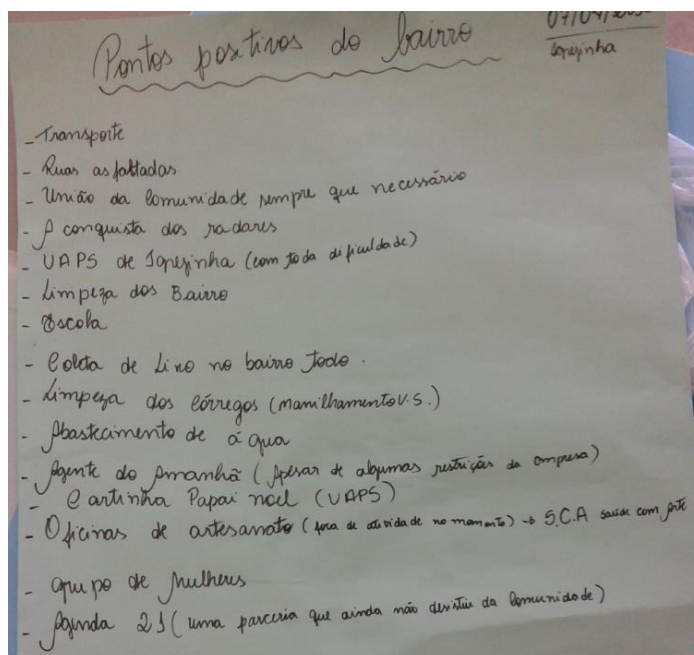 Pontos positivos do bairro
Igrejinha
- Transporte
- Ruas asfaltadas
- União da Comunidade sempre que necessário
- A conquista dos radares
- UAPS de Igrejinha (com toda dificuldade)
- Limpeza dos Bairro
- Escola
- Coleta de Lixo no bairro todo.
- Limpeza dos Córregos (manilhamento V.S.)
- Abastecimento de água
- Agente do Amanhã (Apesar de algumas restrições da empresa)
- Cartinha Papai noel (UAPS)
- Oficinas de artesanato (fora de atividade no momento) → S.C.A saúde com arte
- Grupo de Mulheres
- Agenda 21 (uma parceria que ainda não desistiu da Comunidade)